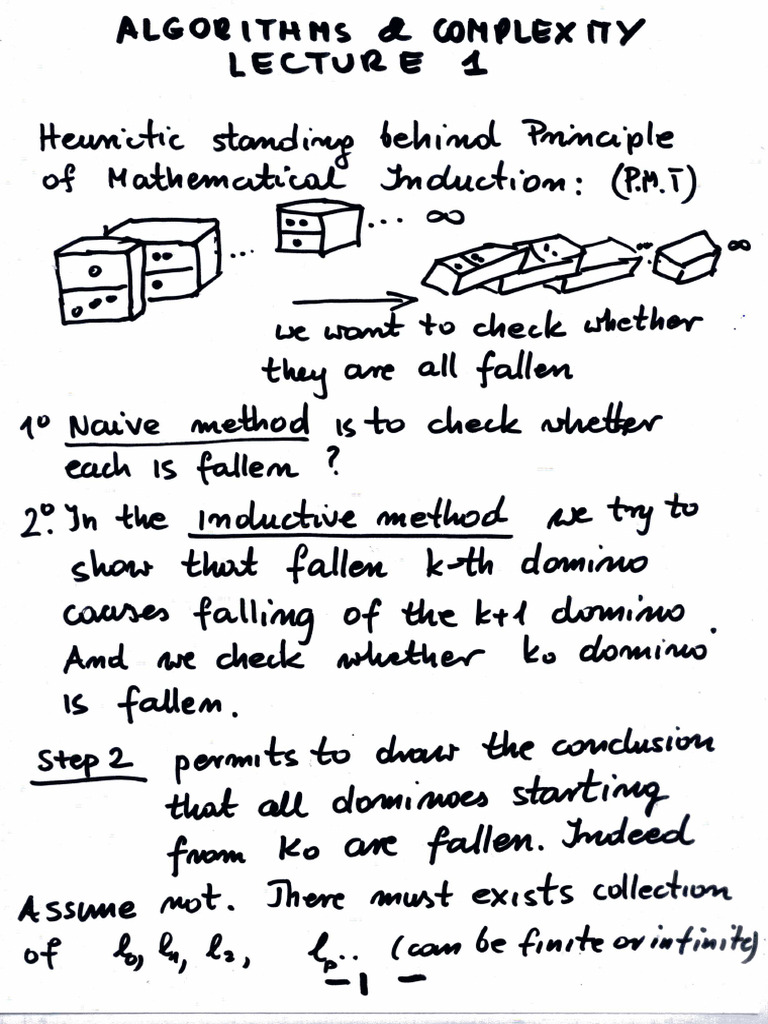 ALGORITHMS & COMPLEXITY
LECTURE 1
Heuristic standing behind Principle
of Mathematical Induction: (P.M.I)
... ... ∞
... ∞
we want to check whether
they are all fallen
1° Naive method is to check whether
each is fallen ?
2°. In the inductive method we try to
show that fallen k-th domino
causes falling of the k+1 domino.
And we check whether k0 domino
is fallen.
Step 2 permits to draw the conclusion
that all dominoes starting
from k0 are fallen. Indeed
Assume not. There must exists collection
of l0, l1, l2, lp.. (can be finite or infinite)
- 1 -